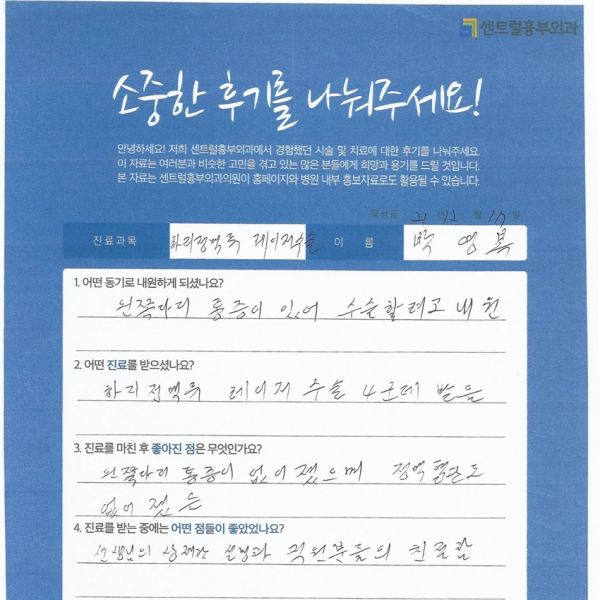 센트럴흉부외과
소중한 후기를 나눠주세요!
안녕하세요! 저희 센트럴흉부외과에서 경험했던 시술 및 치료에 대한 후기를 나눠주세요.
이 자료는 여러분과 비슷한 고민을 겪고 있는 많은 분들에게 희망과 용기를 드릴 것입니다.
본 자료는 센트럴흉부외과의원이 홈페이지와 병원 내부 홍보자료로도 활용될 수 있습니다.
작성일 21 년 12 월 17 일
진료과목 하지정맥류 레이저수술 이 름 박 영
1. 어떤 동기로 내원하게 되셨나요?
왼쪽다리 통증이 있어 수술할려고 내원
2. 어떤 진료를 받으셨나요?
하지정맥류 레이저 수술 4군데 받음
3. 진료를 마친 후 좋아진 점은 무엇인가요?
왼쪽다리 통증이 없어졌으며 정맥혈관도
없어졌음
4. 진료를 받는 중에는 어떤 점들이 좋았었나요?
선생님의 상세한 설명과 직원분들의 친절함